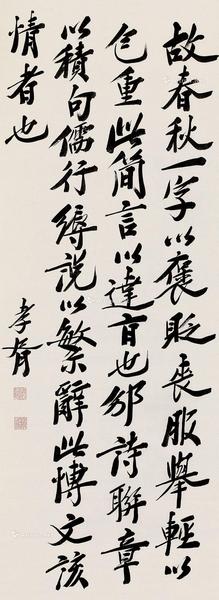 故春秋一字以褒貶喪服舉輕以
包重此簡言以達旨也邠詩聯章
以積句儒行縟説以繁辭此博文該
情者也
孝胥